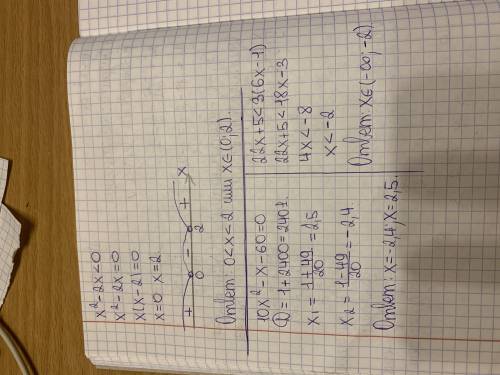 x²-2x<0
x²-2x=0
x(x-2)=0
x=0 x=2
+ - + x
0 2
Ответ: 0<x<2 или x∈(0;2).
10x²-x-60=0
D=1+2400=2401
x₁=1+49/20=2,5
x₂=1-49/20=-2,4.
Ответ: x=-2,4; x=2,5.
22x+5<3(6x-1)
22x+5<18x-3
4x<-8
x<-2
Ответ: x∈(-∞;-2)